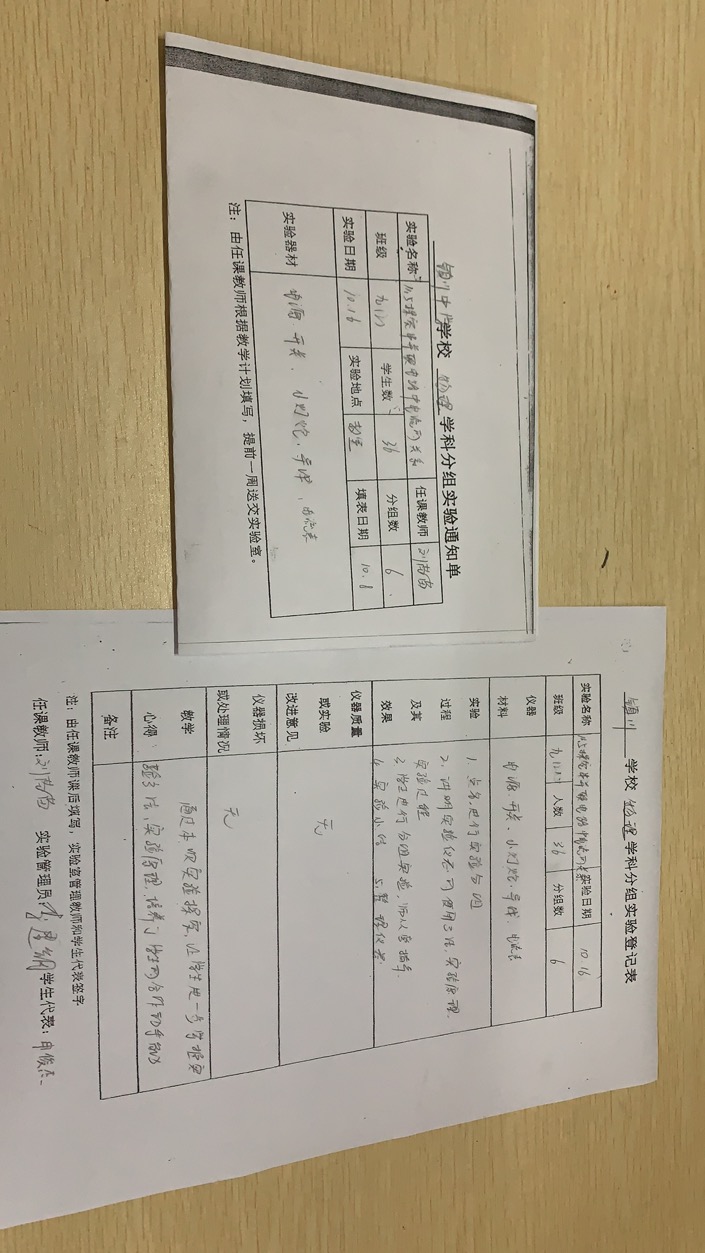 学校 物理 学科分组实验通知单
实验名称 11.5探究串并联电路中电流的关系 任课教师
班级 学生数 36 分组数 6
实验日期 10.16 实验地点 教室 填表日期 10.8
实验器材 电源 开关、小灯泡、导线、电流表
注：由任课教师根据教学计划填写，提前一周送交实验室。
颍川 学校 物理 学科分组实验登记表
实验名称 11.5探究串并联电路中电流的关系 实验日期 10.16
班级 人数 36 分组数 6
仪器材料 电源、开关、小灯泡、导线 电流表
实验过程及其效果 1.首先进行实验分组
2.讲明实验仪器的使用方法,实验原理.
实验过程
3.学生进行分组实验,师从旁指导.
4.实验小结 5.整理仪器.
仪器质量或实验改进意见 无
仪器损坏或处理情况 无
教学心得: 通过本次实验探究,让学生进一步掌握实
验方法,实验原理,培养了学生的合作动手能力
备注
注：由任课教师课后填写，实验室管理教师和学生代表签字
任课教师: 实验管理员: 学生代表: